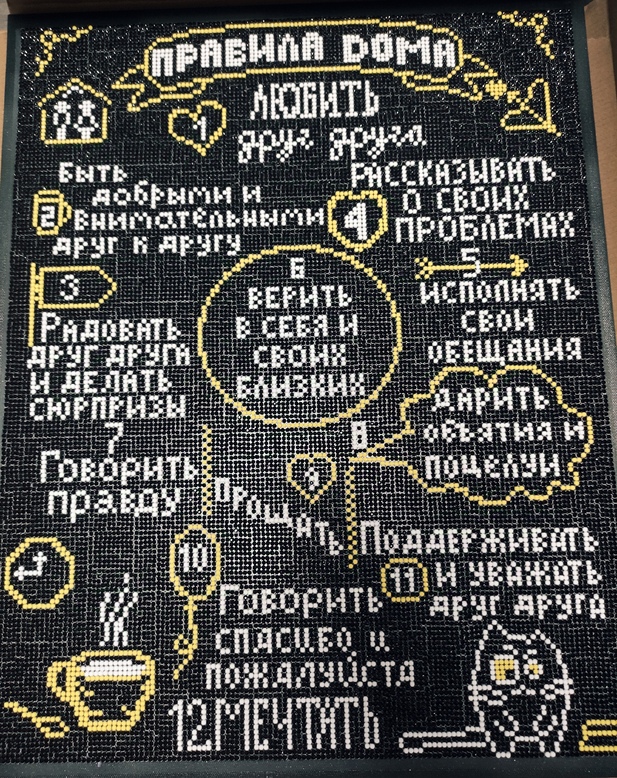 ПРАВИЛА ДОМА
1
ЛЮБИТЬ
друг друга
2
БЫТЬ
добрыми и
внимательными
друг к другу
3
РАДОВАТЬ
ДРУГ ДРУГА
И ДЕЛАТЬ
СЮРПРИЗЫ
4
РАССКАЗЫВАТЬ
О СВОИХ
ПРОБЛЕМАХ
5
ИСПОЛНЯТЬ
СВОИ
ОБЕЩАНИЯ
6
ВЕРИТЬ
В СЕБЯ И
СВОИХ
БЛИЗКИХ
7
ГОВОРИТЬ
правду
8
ДАРИТЬ
объятия и
поцелуи
9
ПРОЩАТЬ
10
ГОВОРИТЬ
спасибо и
пожалуйста
11
ПОДДЕРЖИВАТЬ
И УВАЖАТЬ
друг друга
12 МЕЧТАТЬ